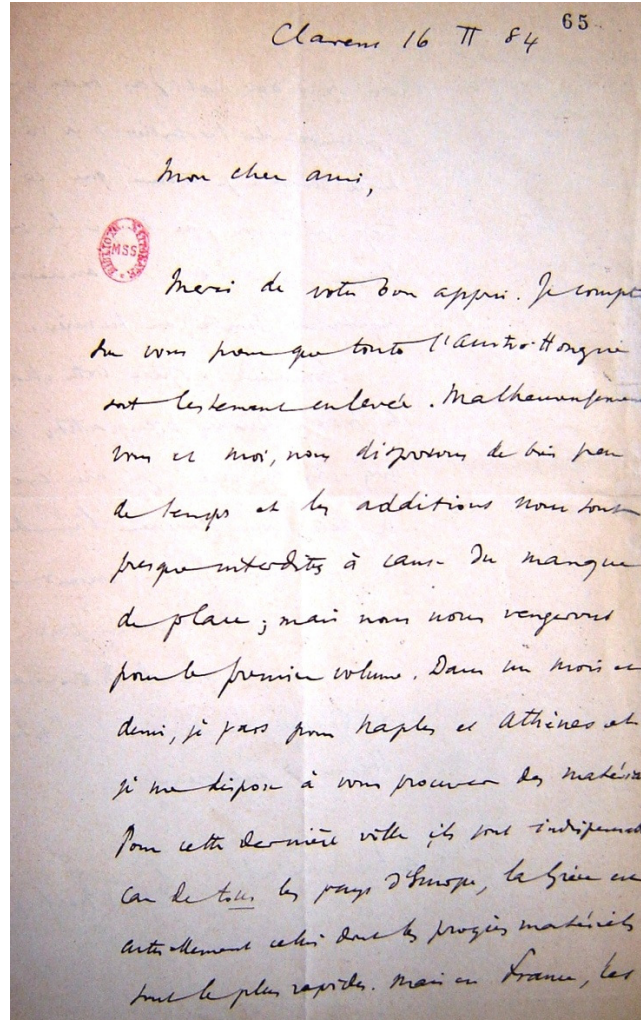 65
Clarens 16 II 84
Mon cher ami,
MSS
Merci de votre bon appui. Je compte
sur vous pour que toute l'Austro-Hongrie
soit lestement enlevée. Malheureusement
vous et moi, nous disposons de bien peu
de temps et les additions nous sont
presque interdites à cause du manque
de place ; mais nous nous vengerons
pour le premier volume. Dans un mois et
demi, je pars pour Naples et Athènes et
je me dispose à vous procurer des matéria
Pour cette dernière ville ils sont indispensa
car de tous les pays d'Europe, la Grèce est
actuellement celui dont les progrès matériels
sont le plus rapides. Mais en France, les